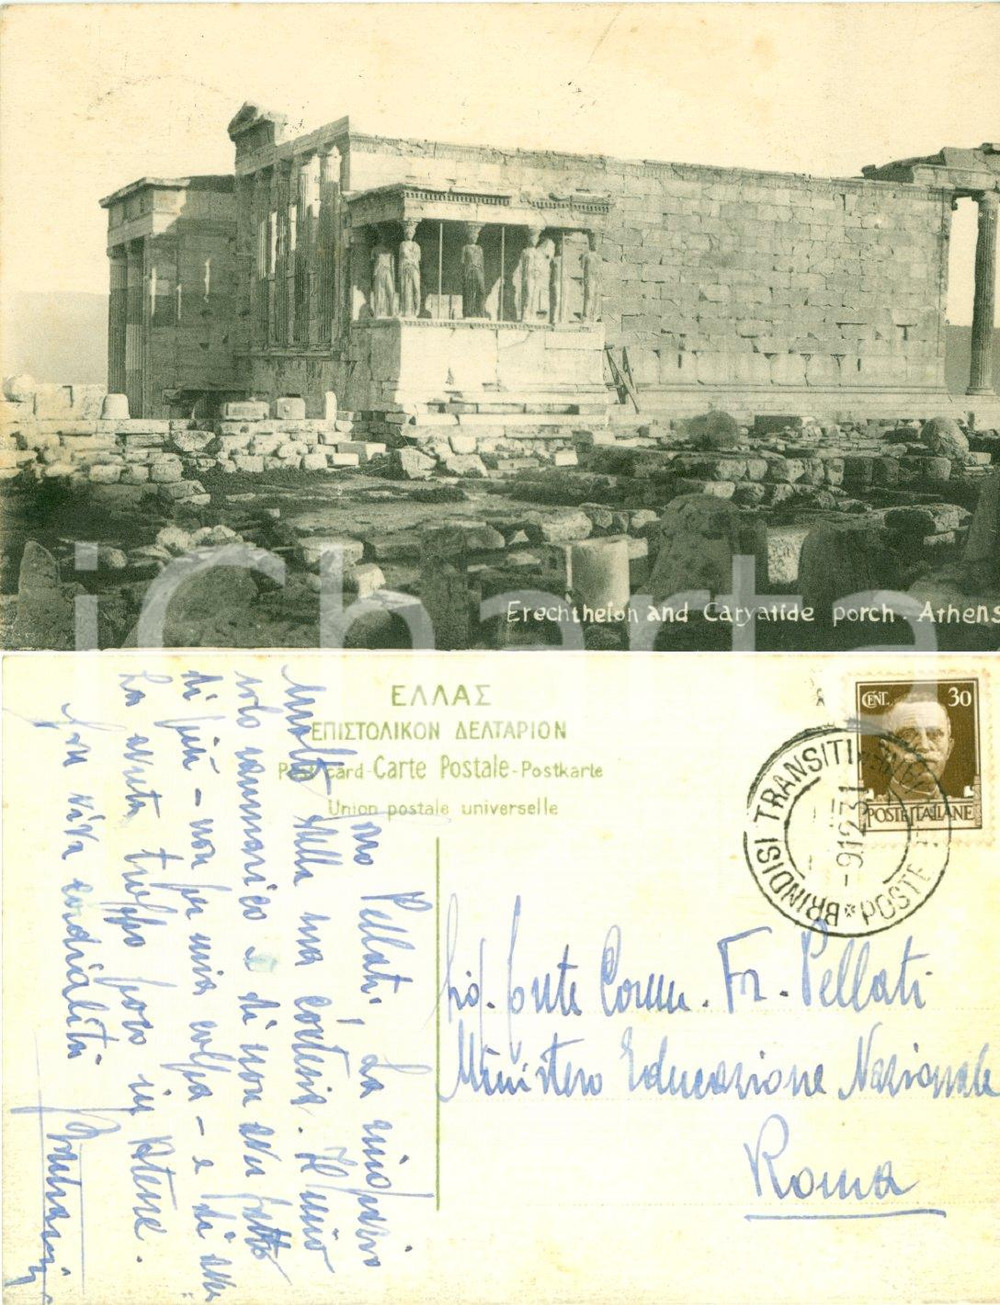 Erechtheion and Caryatide porch. Athens
iCharta
ΕΛΛΑΣ
ΕΠΙΣΤΟΛΙΚΟΝ ΔΕΛΤΑΡΙΟΝ
Post card-Carte Postale-Postkarte
Union postale universelle
CENT. 30
POSTE ITALIANE
BRINDISI TRANSITI
POSTE
-9.12.31
Pellati, La ringrazio
molto della sua cortesia. Il mio
solo rammarico è di non aver fatto
di più - non per mia colpa - e di
La avuta troppo poco in Atene.
Con viva cordialità
Comm. Fr. Pellati
Ministero Educazione Nazionale
Roma